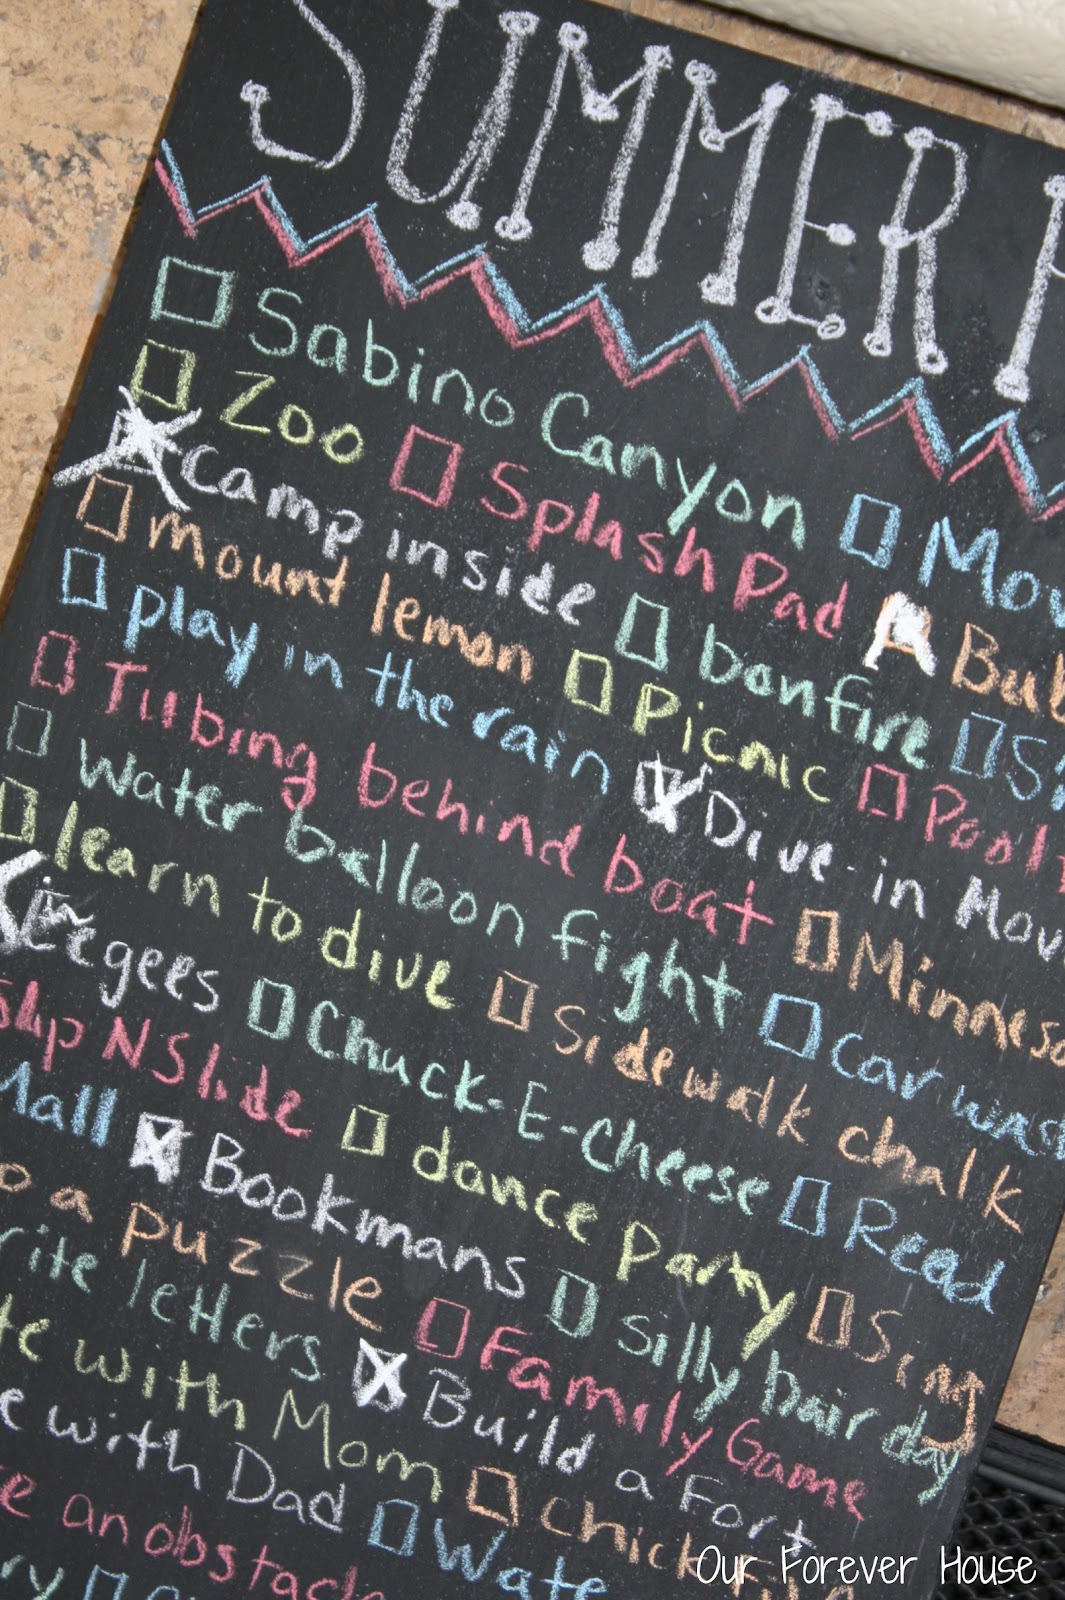 SUMMER
Sabino Canyon
Zoo Splash Pad Mov
Camp inside bonfire Bub
mount lemon Picnic
play in the rain Dive-in Mov
Tubing behind boat Minneso
Water balloon fight Car wash
learn to dive Sidewalk chalk
eegees Chuck-E-Cheese Read
Slip N Slide dance Party Sing
Mall Bookmans Silly hair day
a puzzle Family Game
rite letters Build a Fort
te with Mom
e with Dad Wate
an obstac
ry
Our Forever House